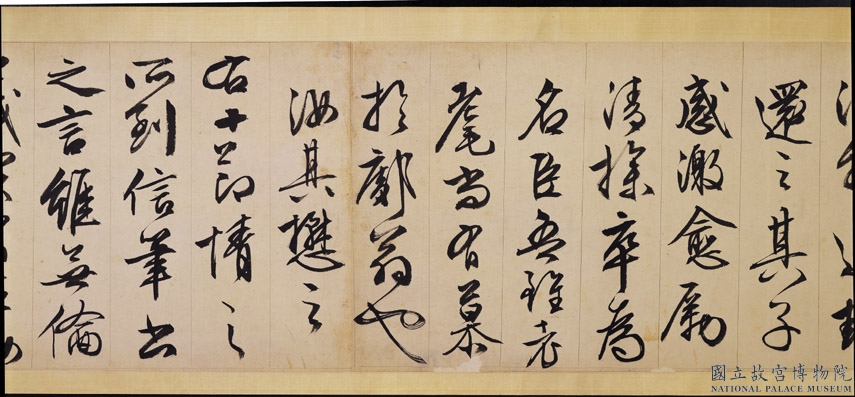 還之其子
感激愈勵
清操卒為
名臣吾雖老
耄尚有慕
於鄺翁也
汝其懋之
右十一節情之
所到信筆書
之言雖無倫
國立故宮博物院
NATIONAL PALACE MUSEUM